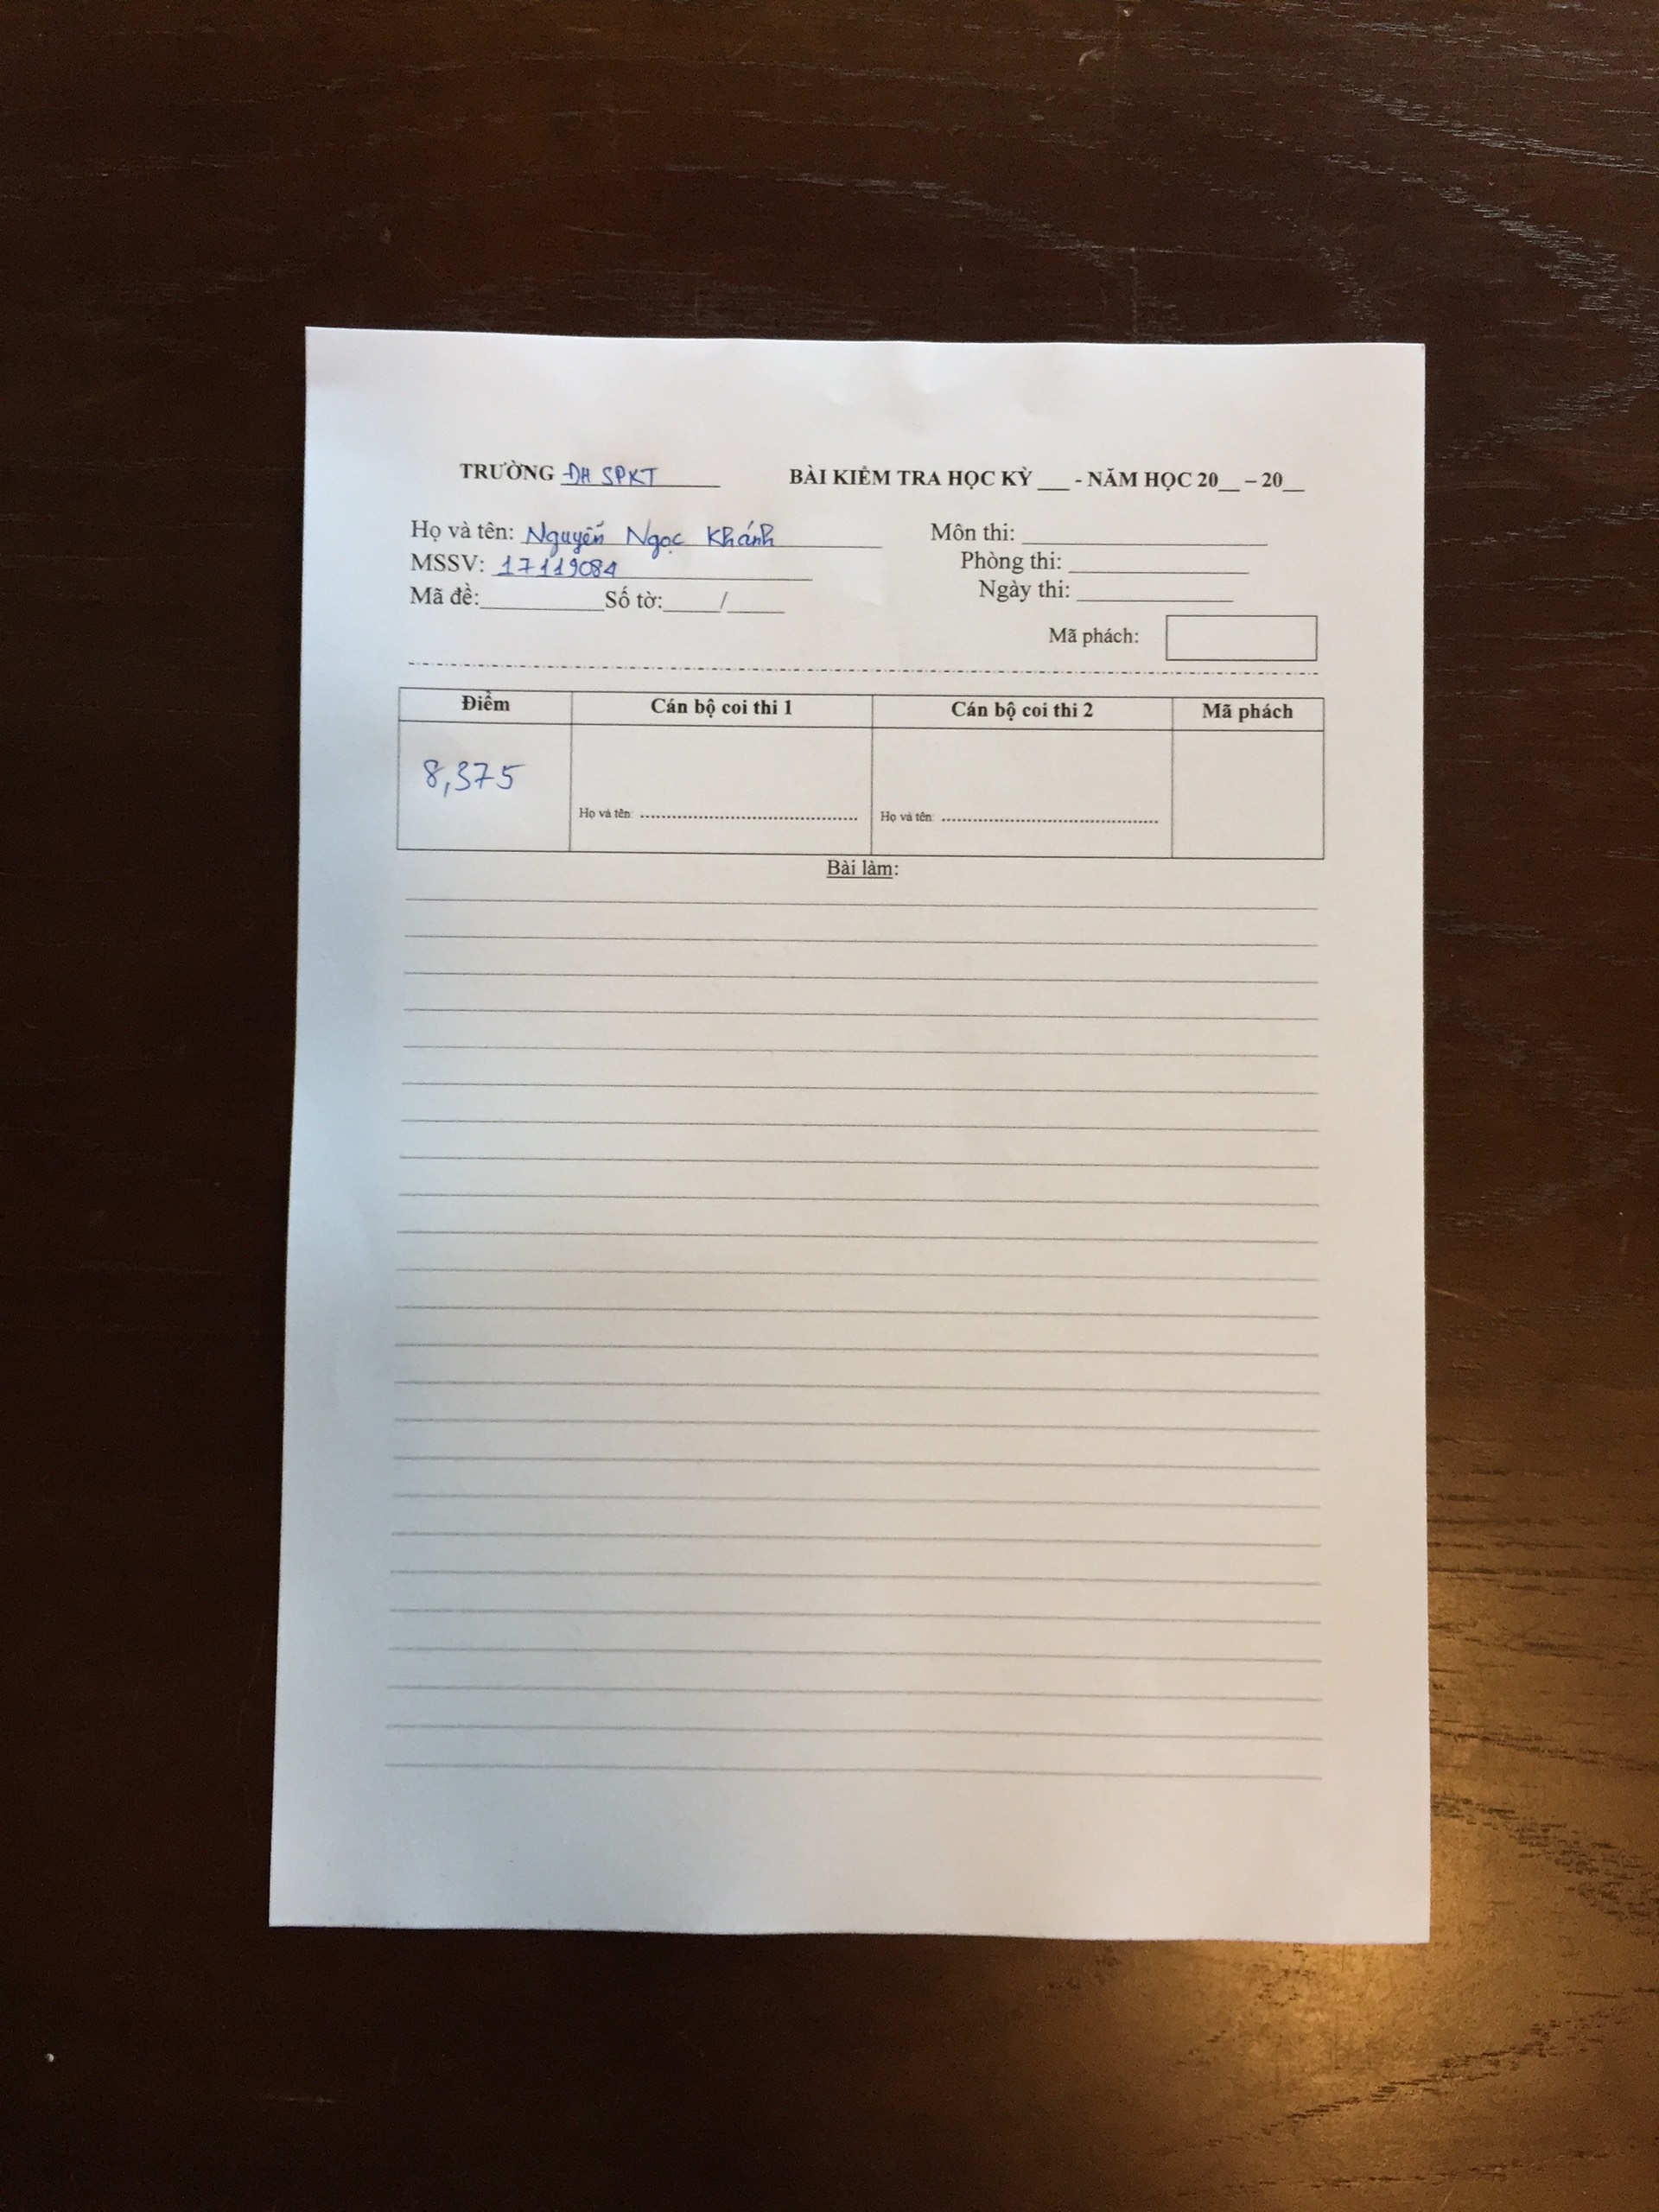 TRƯỜNG ĐH SPKT BÀI KIỂM TRA HỌC KỲ ___ - NĂM HỌC 20__ – 20__
Họ và tên: Nguyễn Ngọc Khánh Môn thi: ____________
MSSV: 17119084 Phòng thi: ____________
Mã đề:__________Số tờ:_____/_____ Ngày thi: ____________
Mã phách:
Điểm Cán bộ coi thi 1 Cán bộ coi thi 2 Mã phách
8,375
Họ và tên: .................... Họ và tên: ....................
Bài làm: